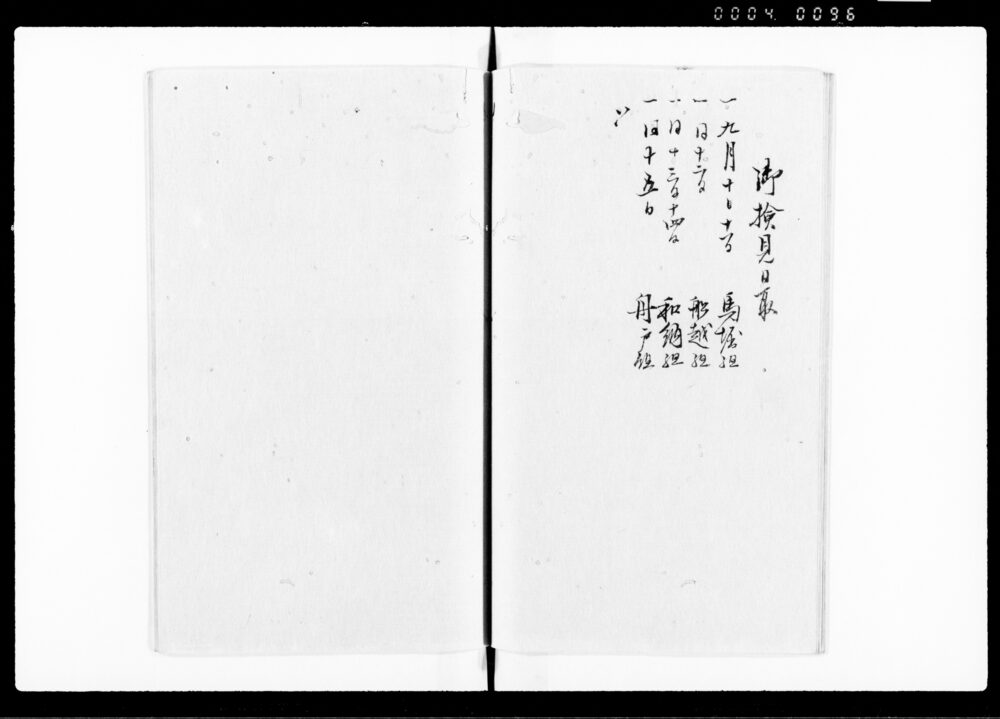 0004 0096
御検見日取
一九月十日十一日 馬堀組
一同十二日 船越組
一同十三日十四日 和納組
一同十五日 舟戸組
〆